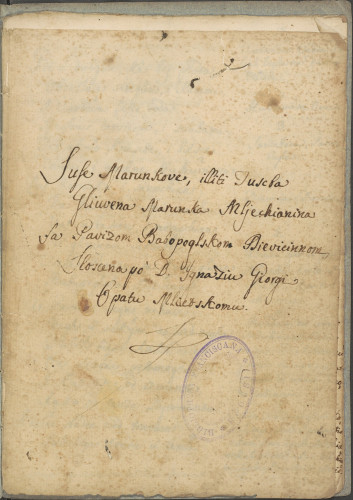 Suse Marunkove, illiti Tuscba
Gliuvena Marunka Mljechianina
sa Pavizom Babopogliskom Dievicinnom,
Slosena pò D. Ignaziu Giorgi
Opatu Mlietskomu.